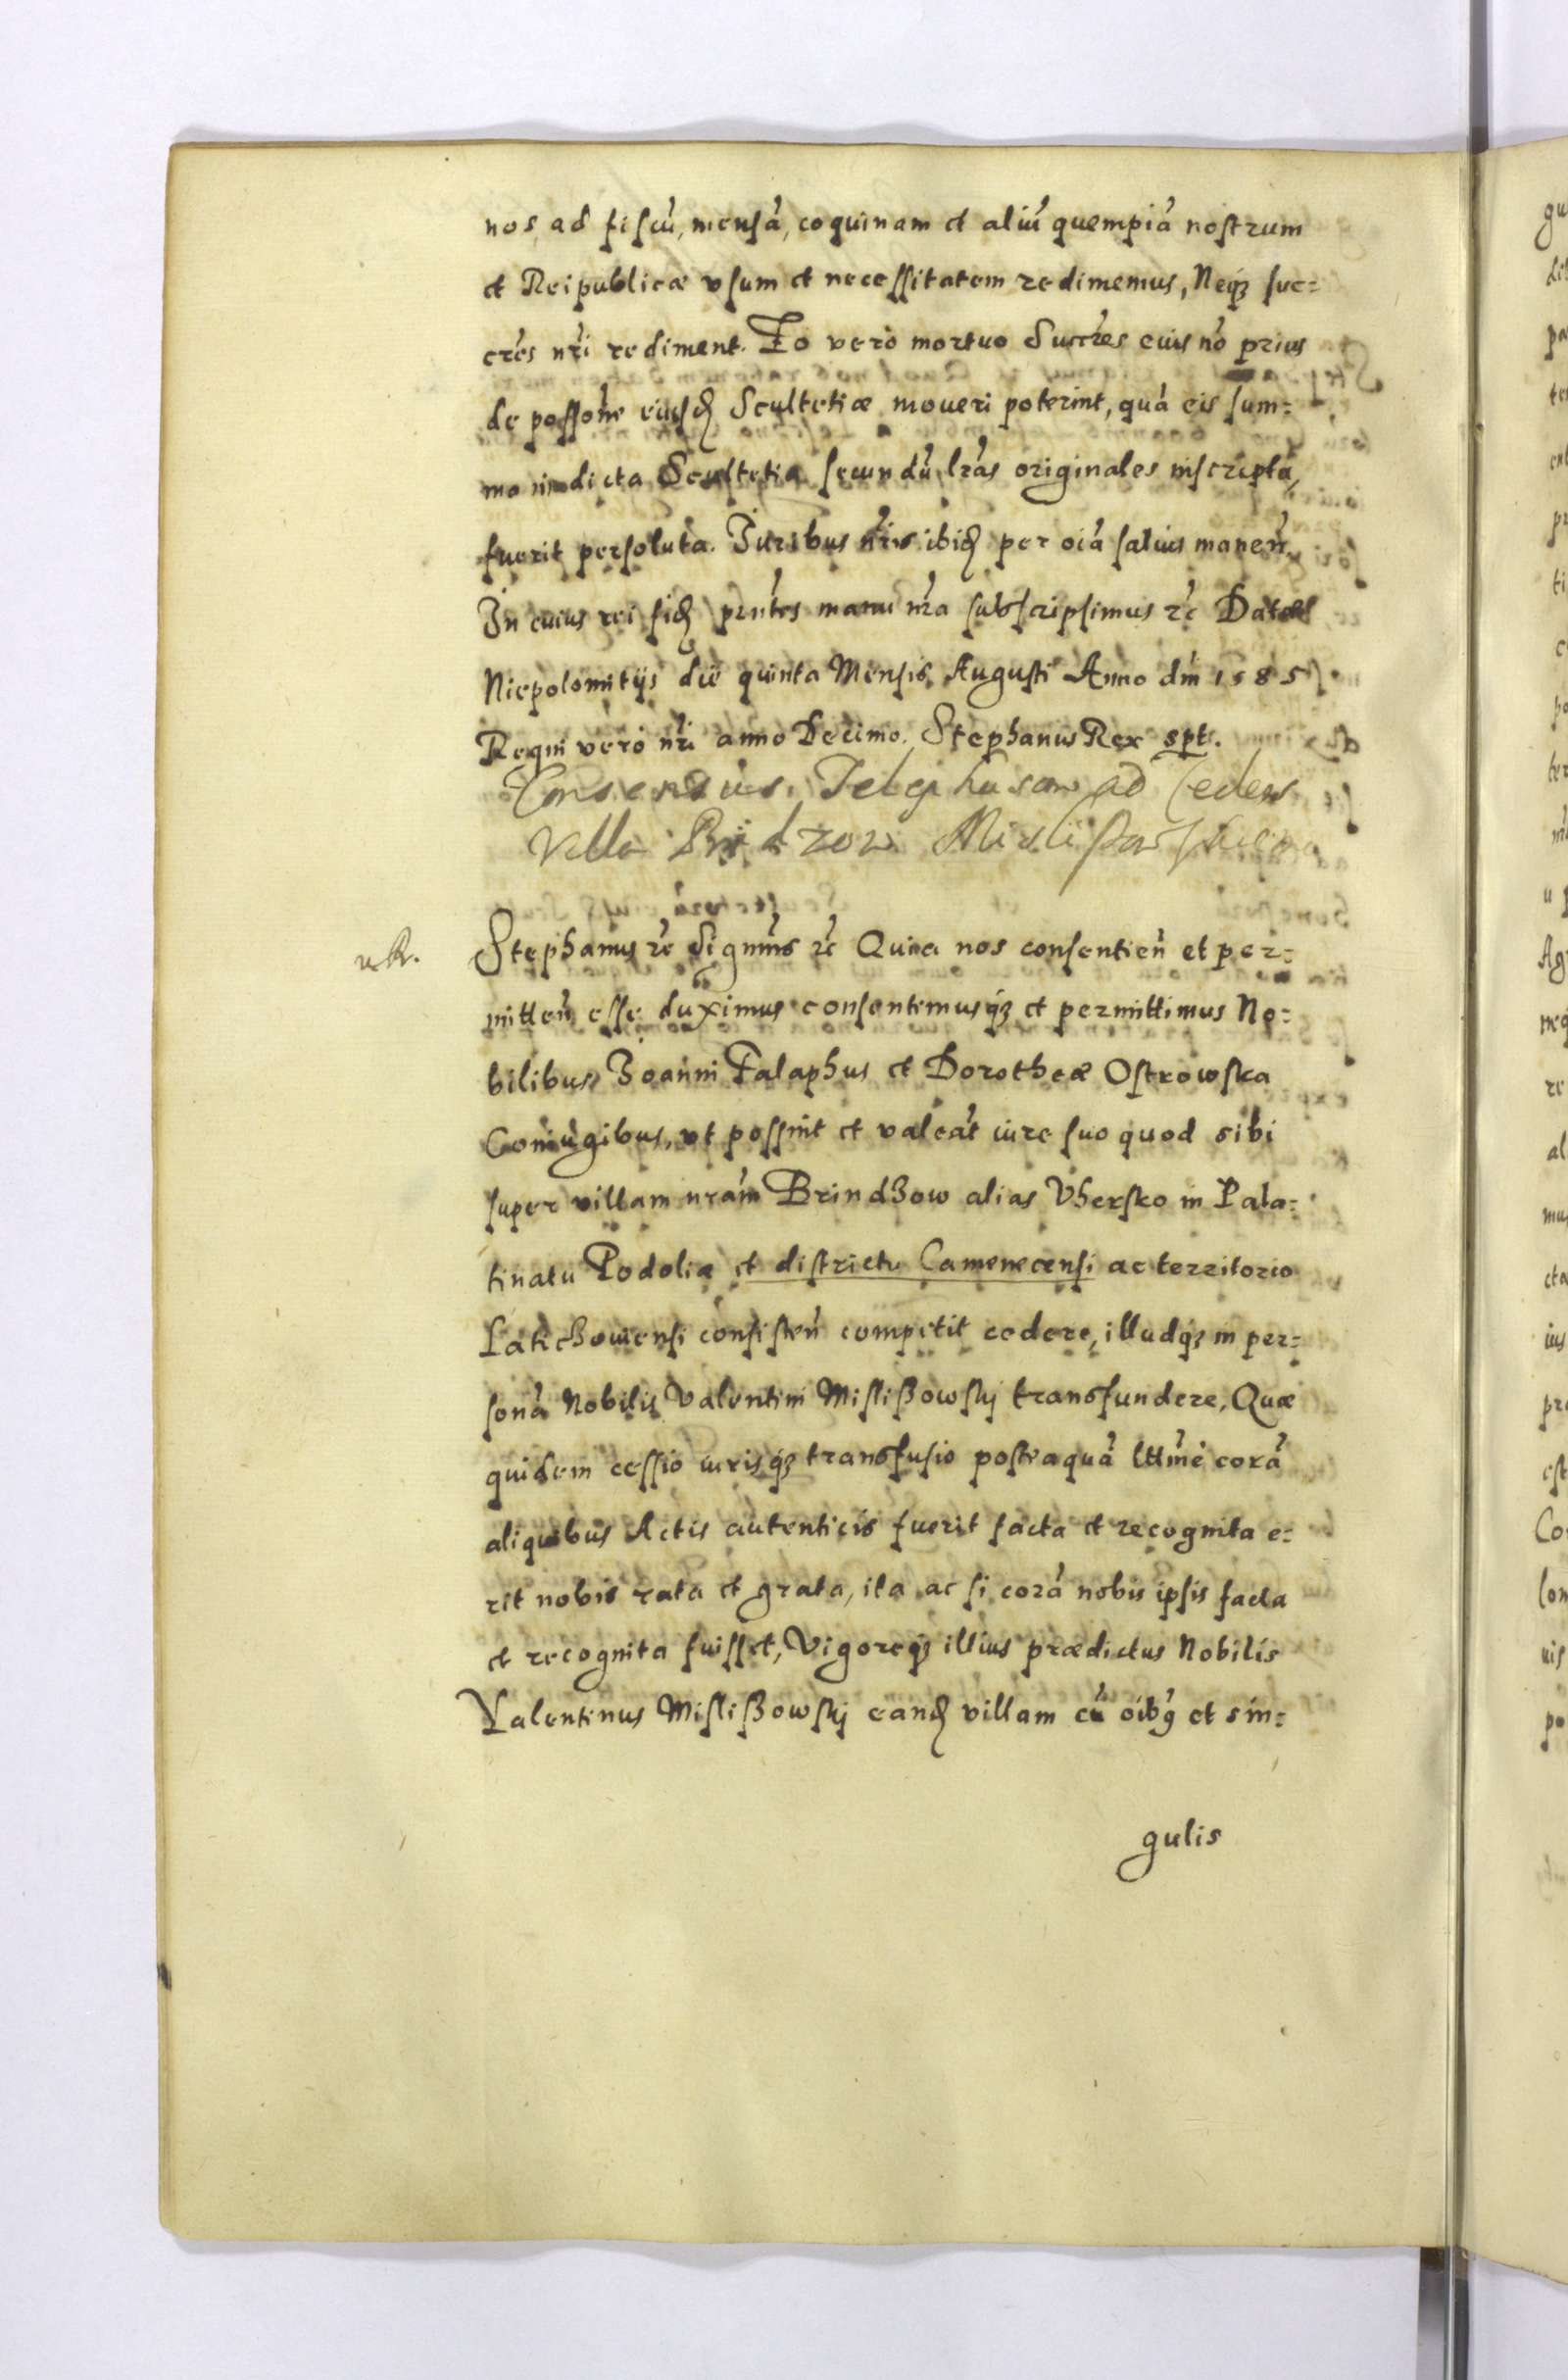 nos, ad fiscū, mensā, coquinam et aliū quempiā nostrum
et Reipublicæ vsum et necessitatem redimemus, Neqȝ suc=
crēs nr̄i rediment. Eo verò mortuo Succr̄es eius nō prius
de possōne eiusd̄ Scultetiæ moueri poterint, quā eis sum=
ma in dicta Scultetia secundū lr̄as originales inscripta,
fuerit persoluta. Iuribus nr̄is ibid̄ per oīa saluis maneñ.
In cuius rei fid̄ pr̄ntes manu nr̄a subscripsimus r̄c Datæ
Niepolomitijs die quinta Mensis Augusti Anno dn̄i 1585
Regni verò nr̄i anno Decimo. Stephanus Rex spt.
Consensus ad Ceden
Villa
Stephanus r̄c Significamus r̄c Quia nos consentieñ et per=
mitteñ esse duximus consentimusqȝ et permittimus No=
bilibus Ioanni Falaphus et Dorotheæ Ostrowska
Coniugibus, vt possint et valeāt iure suo quod sibi
super villam nrām Brindzow alias Vhersko in Pala=
tinatu Podoliæ et districtu Camenecensi ac territorio
Latichouiensi consisteñ competit cedere, illudqȝ in per=
sonā Nobilis Valentini Mislißowskj transfundere, Quæ
quidem cessio iurisqȝ transfusio posteaquā lttīmè corā
aliquibus Actis autenticis fuerit facta et recognita e=
rit nobis rata et grata, ita ac si corā nobis ipsis facta
et recognita fuisset, Vigoreqȝ illius prædictus Nobilis
Valentinus Mislißowskj eand̄ villam cū oībꝰ et sin=
gulis